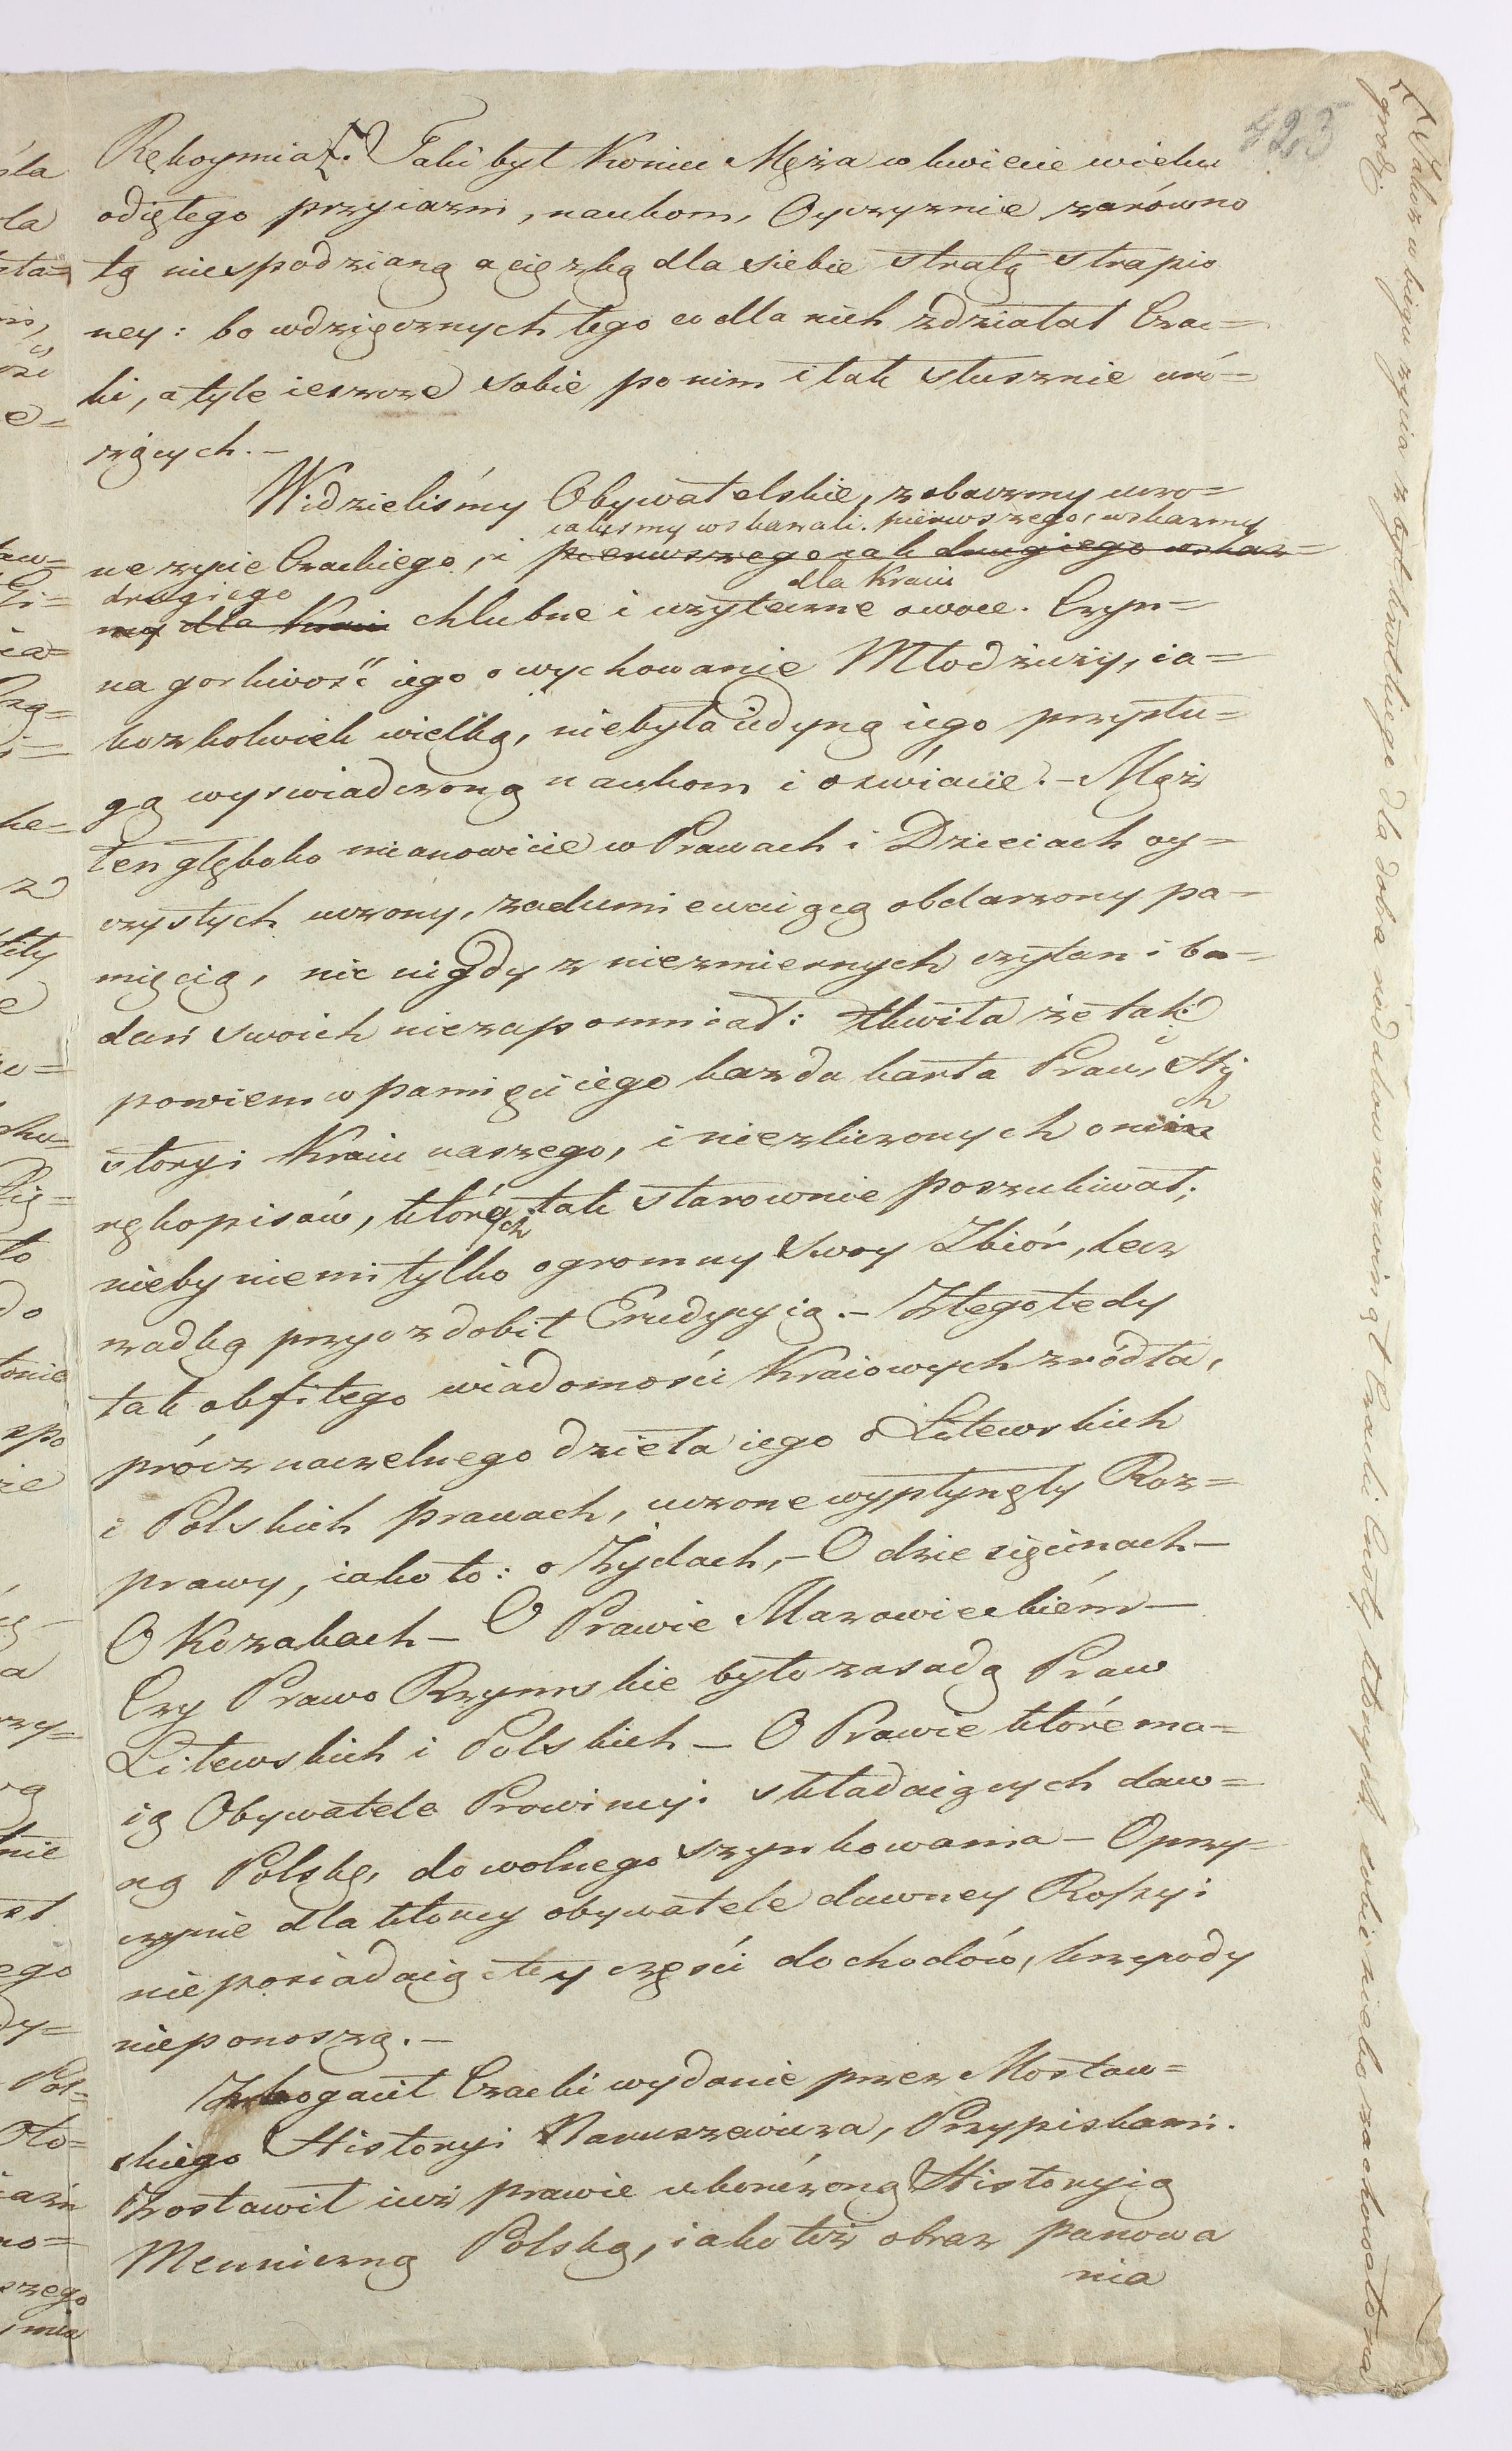 423
Rękoymia[. Taki był koniec Męża w kwiecie wieku
odiętego przyiaźni, naukom, Oyczyznie zarówno
tą niespodzianą a ciężką dla siebie stratą strapio
ney: bo wdzięcznych tego co dla nich zdziałał Czac=
ki, a tyle ieszcze sobie po nim i tak słusznie wró=
żących.-
Widzieliśmy Obywatelskie, zobaczmy uczo=
iakeśmy wskazali. pierwszego, wskażmy
ne życie Czackiego, i pierwszego iak drugiego wskaż=
drugiego dla kraiu
my dla Kraiu chlubne i użyteczne owoce. Czyn=
na gorliwość iego o wychowanie Młodzieży, ia=
kożkolwiek wielką, niebyła iedyną iego przysłu=
gą wyświadczoną naukom i oświacie.- Mąż
ten głęboko mianowicie w Prawach i Dzieiach oy=
czystych uczony, zadumiewaiącą obdarzony pa=
mięcią, nic nigdy z niezmiernych czytań i ba=
dań swoich niezapomniał: tkwiła że tak
powiem w pamięci iego każda karta Praw, i Hi
storyi Kraiu naszego, i niezliczonych o nich
rękopisów, których tak starownie poszukiwał;
nieby niemi tylko ogromny swoy Zbiór, lecz
rzadką przyozdobił Erudycyią.- Z tego tedy
tak obfitego wiadomości Kraiowych zródła,
prócz naczelnego dzieła iego o Litewskich
i Polskich prawach, uczone wypłynęły Roz=
prawy, iako to: o Żydach,- O dziesięcinach-
O Kozakach- O Prawie Mazowieckiém-
Czy Prawo Rzymskie było zasadą Praw
Litewskich i Polskich- O Prawie które ma=
ią Obywatele Prowincyi składaiących daw=
ną Polskę, do wolnego szynkowania- O przy=
czynie dla którey obywatele dawney Rossyi
nieposiadaiąc tey części dochodów, krzywdy
nieponoszą.-
Zbogacił Czacki wydanie przez Mostow=
skiego Historyi Naruszewicza, Przypiskami.
Zostawił iuż prawie ukończoną Historyią
Menniczną Polską, iako też obraz panowa
nia
[Takoż w biegu życia z był krótkiego dla dobra rodaków rozwinął Czacki Cnoty, których sobie niebo zachowało na=
grodzi